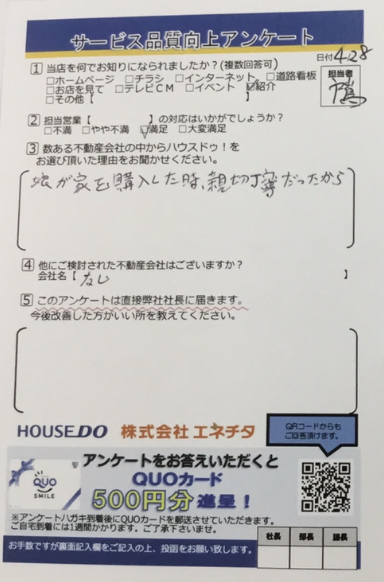 サービス品質向上アンケート
日付4.28
1 当店を何でお知りになられましたか?(複数回答可)
□ホームページ □チラシ □インターネット □道路看板
□お店を見て □テレビCM □イベント ☑紹介
□その他【 】
担当者
2 担当営業【 】の対応はいかがでしょうか?
□不満 □やや不満 ☑満足 □大変満足
3 数ある不動産会社の中からハウスドゥ!を
お選び頂いた理由をお聞かせください。
娘が家を購入した時、親切丁寧だったから
4 他にご検討された不動産会社はございますか?
会社名【 なし 】
5 このアンケートは直接弊社社長に届きます。
今後改善した方がいい所を教えてください。
HOUSE DO 株式会社 エネチタ
QRコードからも
ご回答頂けます。
QUO
SMILE
アンケートをお答えいただくと
QUOカード
500円分 進呈!
※アンケートハガキ到着後にQUOカードを郵送させていただきます。
ご自宅到着には1週間かかります。ご了承下さいませ。
お手数ですが裏面記入欄をご記入の上、投函をお願い致します。
社長 部長 課長